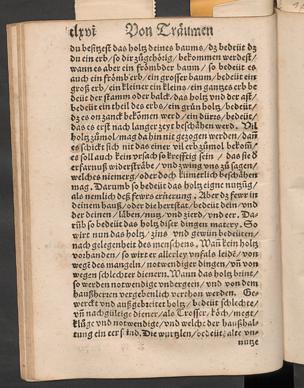 clxvi Von Träumen
du besitzest das holtz deines baums / dz bedeüt dz
du ein erb / so dir zůgehörig / bekommen werdest /
wann es aber ein frömbder baum / so bedeüt es
auch ein frömb erb / ein grosser baum / bedeüt ein
groß erb / ein kleiner ein kleins / ein gantzes erb be
deüt der stamm oder balck / das holtz vnd der ast /
bedeüt ein theil des erbs / ein grün holtz / bedeüt /
dz es on zanck bekomen werd / ein dürrs / bedeüt /
das es erst nach langer zeyt beschähen werd. Vil
holtz zůmol / mag dahin nit gezogen werden / dañ
es schickt sich nit das einer vil erb zůmol bekom̃ /
es soll auch kein vrsach so krefftig sein / das sie d
erfarnuß widersträbe / vnd zwing vns zů sagen /
welches niemerg / oder doch kümerlich beschähen
mag. Darumb so bedeüt das holtz eigne nutzũg /
als nemlich deß fewrs ernerung. Aber dz fewr in
deinem hauß / oder die herdstat / bedeüt dein / vnd
der deinen / läben / nutz / vnd zierd / vnd eer. Da-
rũb so bedeüt das holtz diser dingen matery. So
wirt nun das holtz / zins vnd gewün bedeüten /
nach gelegenheit des menschens. Wañ kein holtz
vorhanden / so wirt er allerley vnfals leidẽ / von
wegẽ des mangels / notwendiger dingen / vñ von
wegen schlechter dienern. Wann das holtz brint /
so werden notwendige vndergeen / vnd von dem
haußherren vergebenlich verthon werden. Ge-
werckt vnd außgebreitet holtz / bedeüt schlechte /
vñ nachgültige diener / als Trosser / köch / megt /
klůge vnd notwendige / vnd welche der haußhal-
tung ein eer sind. Die wurtzlen / bedeüt / alte vn-
nutze